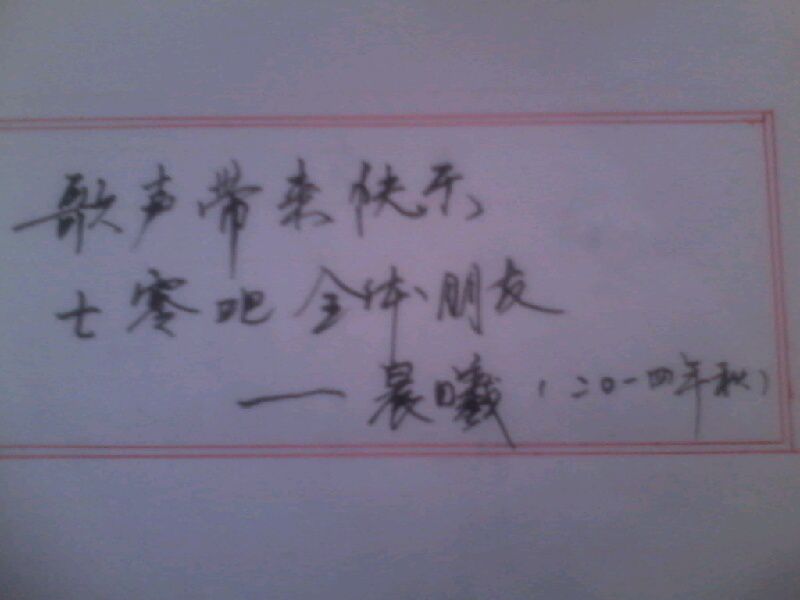 歌声带来快乐
士寒吧全体朋友
——晨曦(二〇一四年秋)